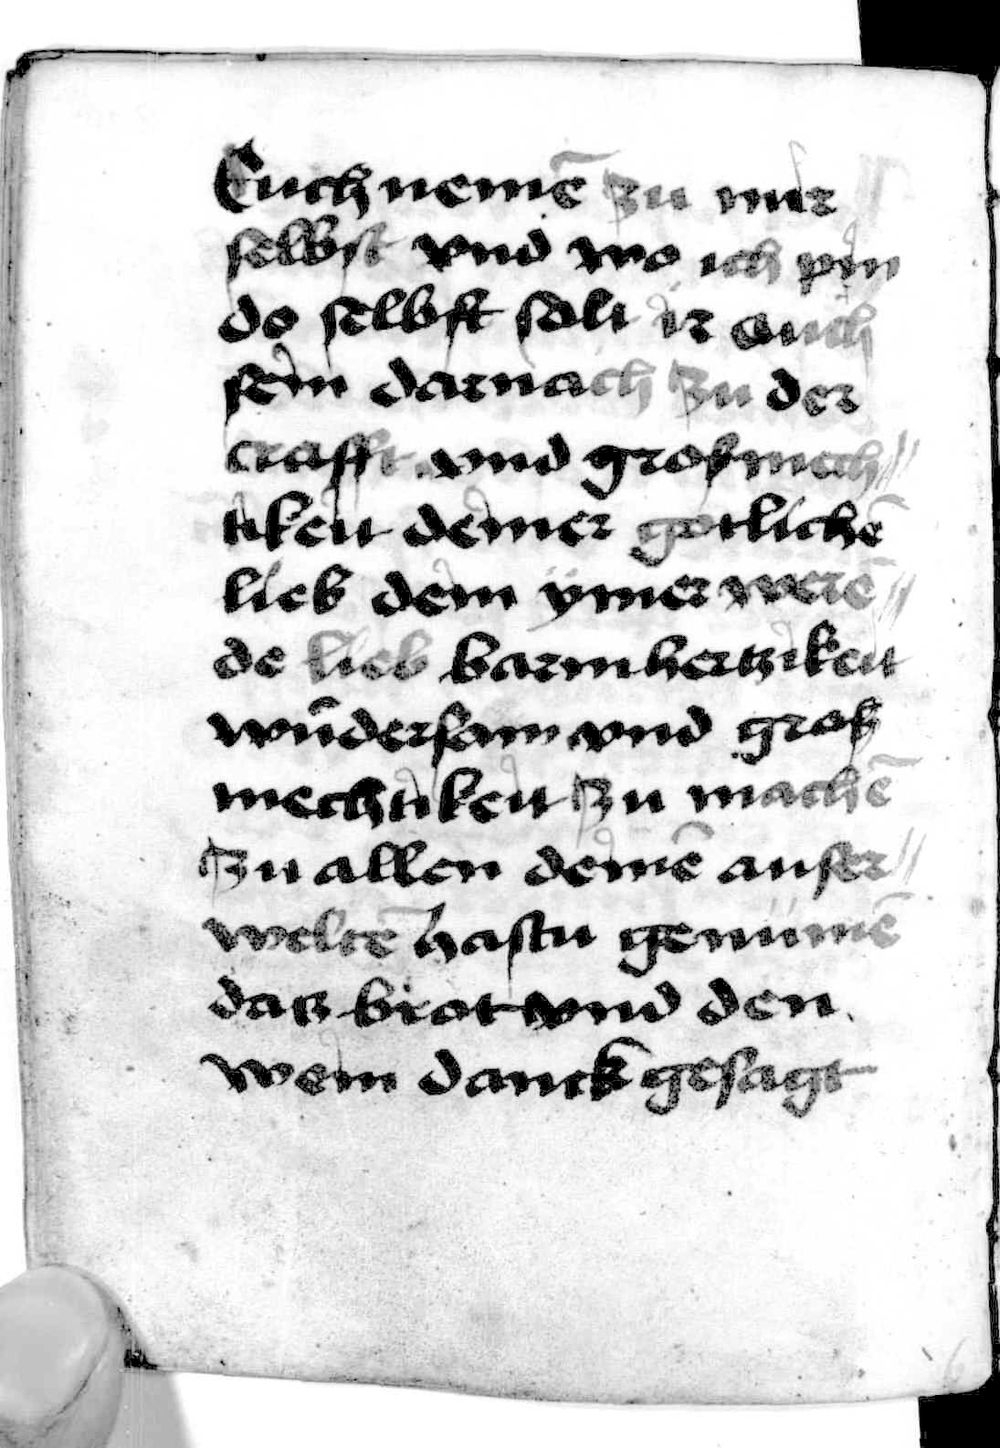 Euch nemē zu mir
selbst vnd wo ich pin
do selbst solt ir auch
sein darnach zu der
crafft vnd großmech//
tikeit deiner gotlichē
lieb dein ymer werē//
de lieb barmhertzikeit
wūdersam vnd groß
mechtikeit zu machē
zu allen deinē ausser//
weltē hastu genūmē
daz brot vnd den
wein danck gesagt